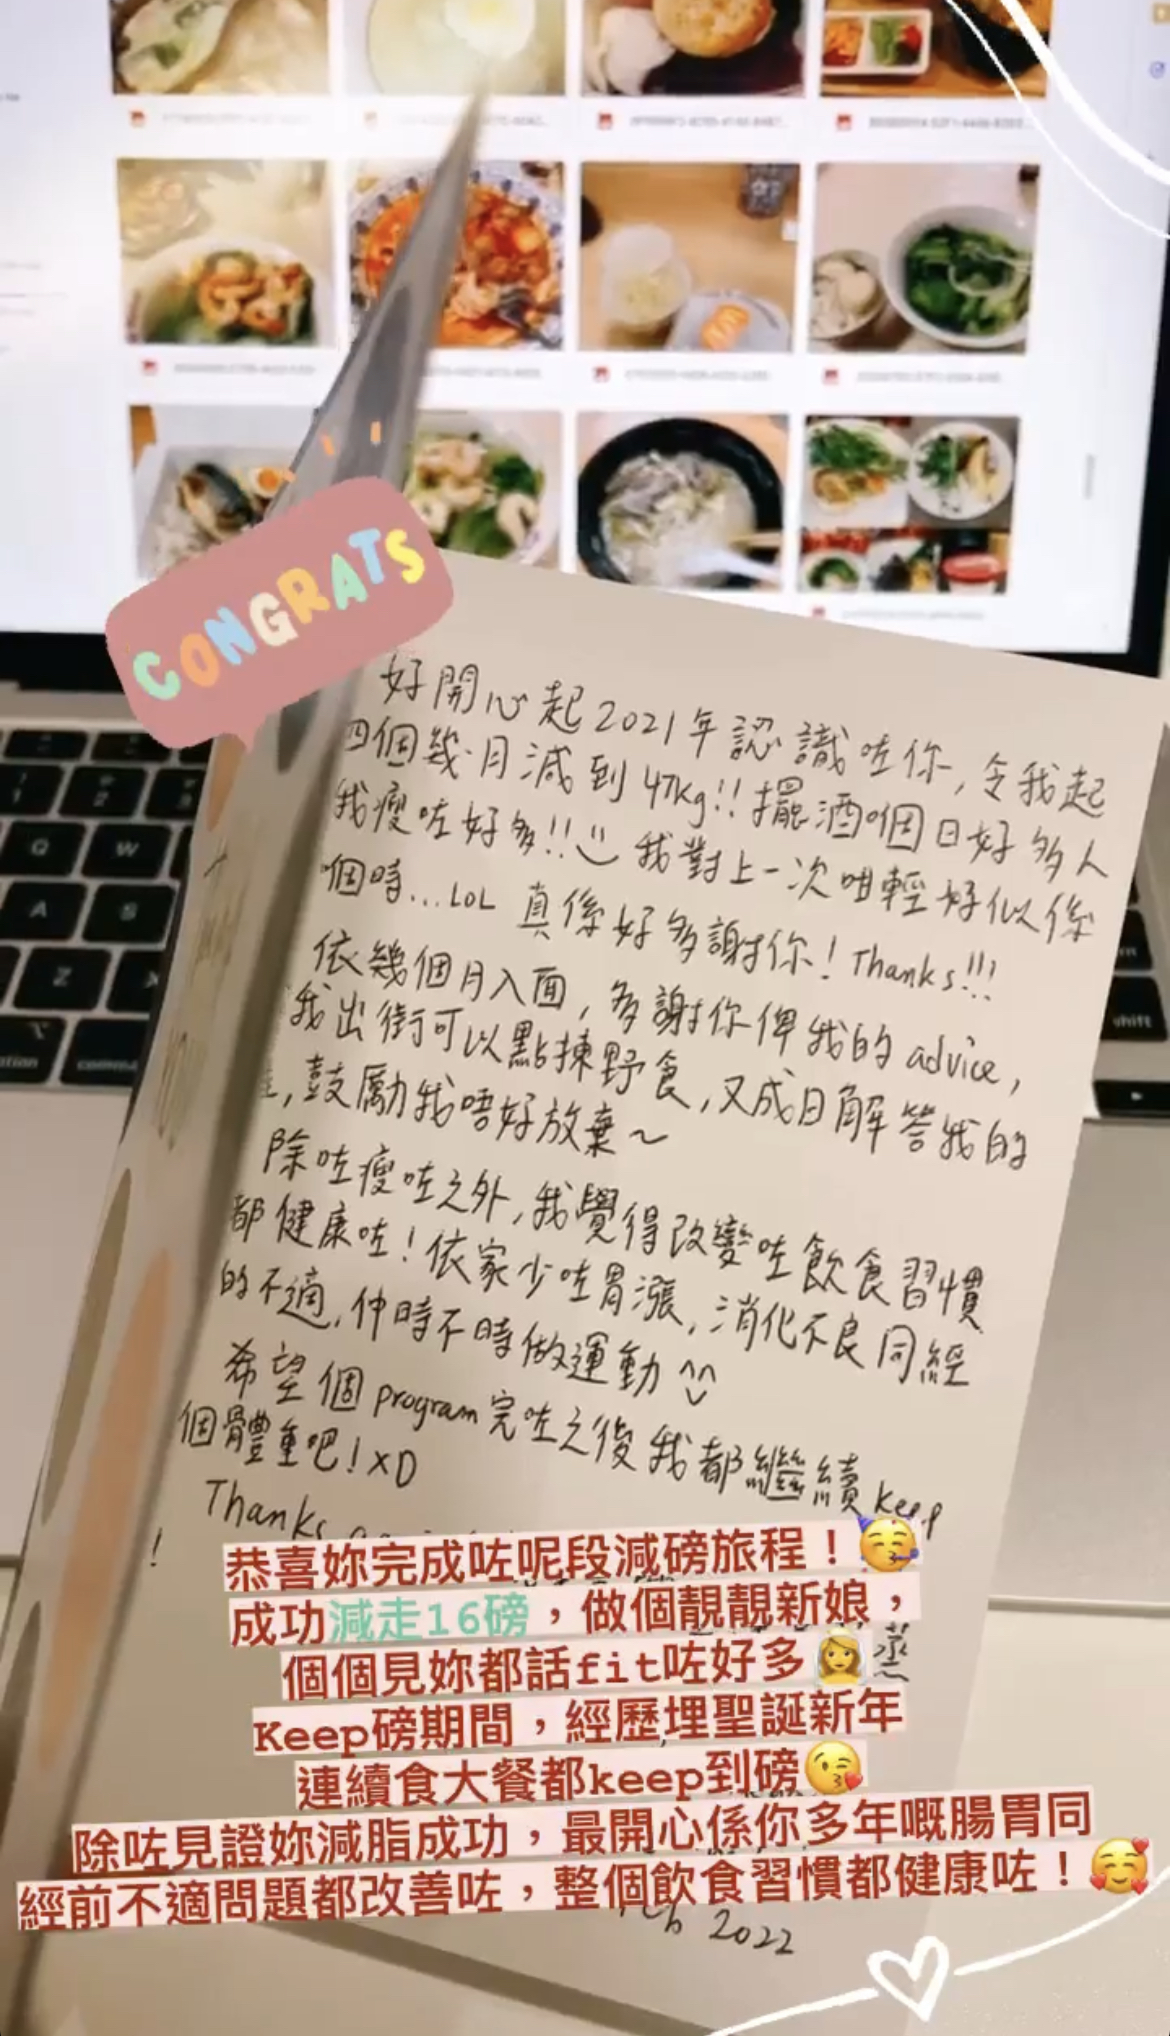 CONGRATS
好開心起2021年認識咗你,令我起
四個幾月減到47kg!!擺酒嗰日好多人
我瘦咗好多!!我對上一次咁輕好似係
嗰時...LOL 真係好多謝你!Thanks!!!
依幾個月入面,多謝你俾我的advice,
我出街可以點揀野食,又成日解答我的
,鼓勵我唔好放棄~
除咗瘦咗之外,我覺得改變咗飲食習慣
都健康咗!依家少咗胃漲,消化不良同經
的不適,仲時不時做運動^^
希望個program完咗之後我都繼續keep
個體重吧!XD
Thanks
!
恭喜妳完成咗呢段減磅旅程!🥳
成功減走16磅,做個靚靚新娘,
個個見妳都話fit咗好多👰
Keep磅期間,經歷埋聖誕新年
連續食大餐都keep到磅😘
除咗見證妳減脂成功,最開心係你多年嘅腸胃同
經前不適問題都改善咗,整個飲食習慣都健康咗!🥰
2022
Q
W
A
S
Z
X
shift